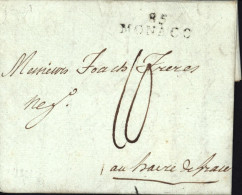 85
MONACO
Messieurs Foache Freres
neg.
au havre de grace